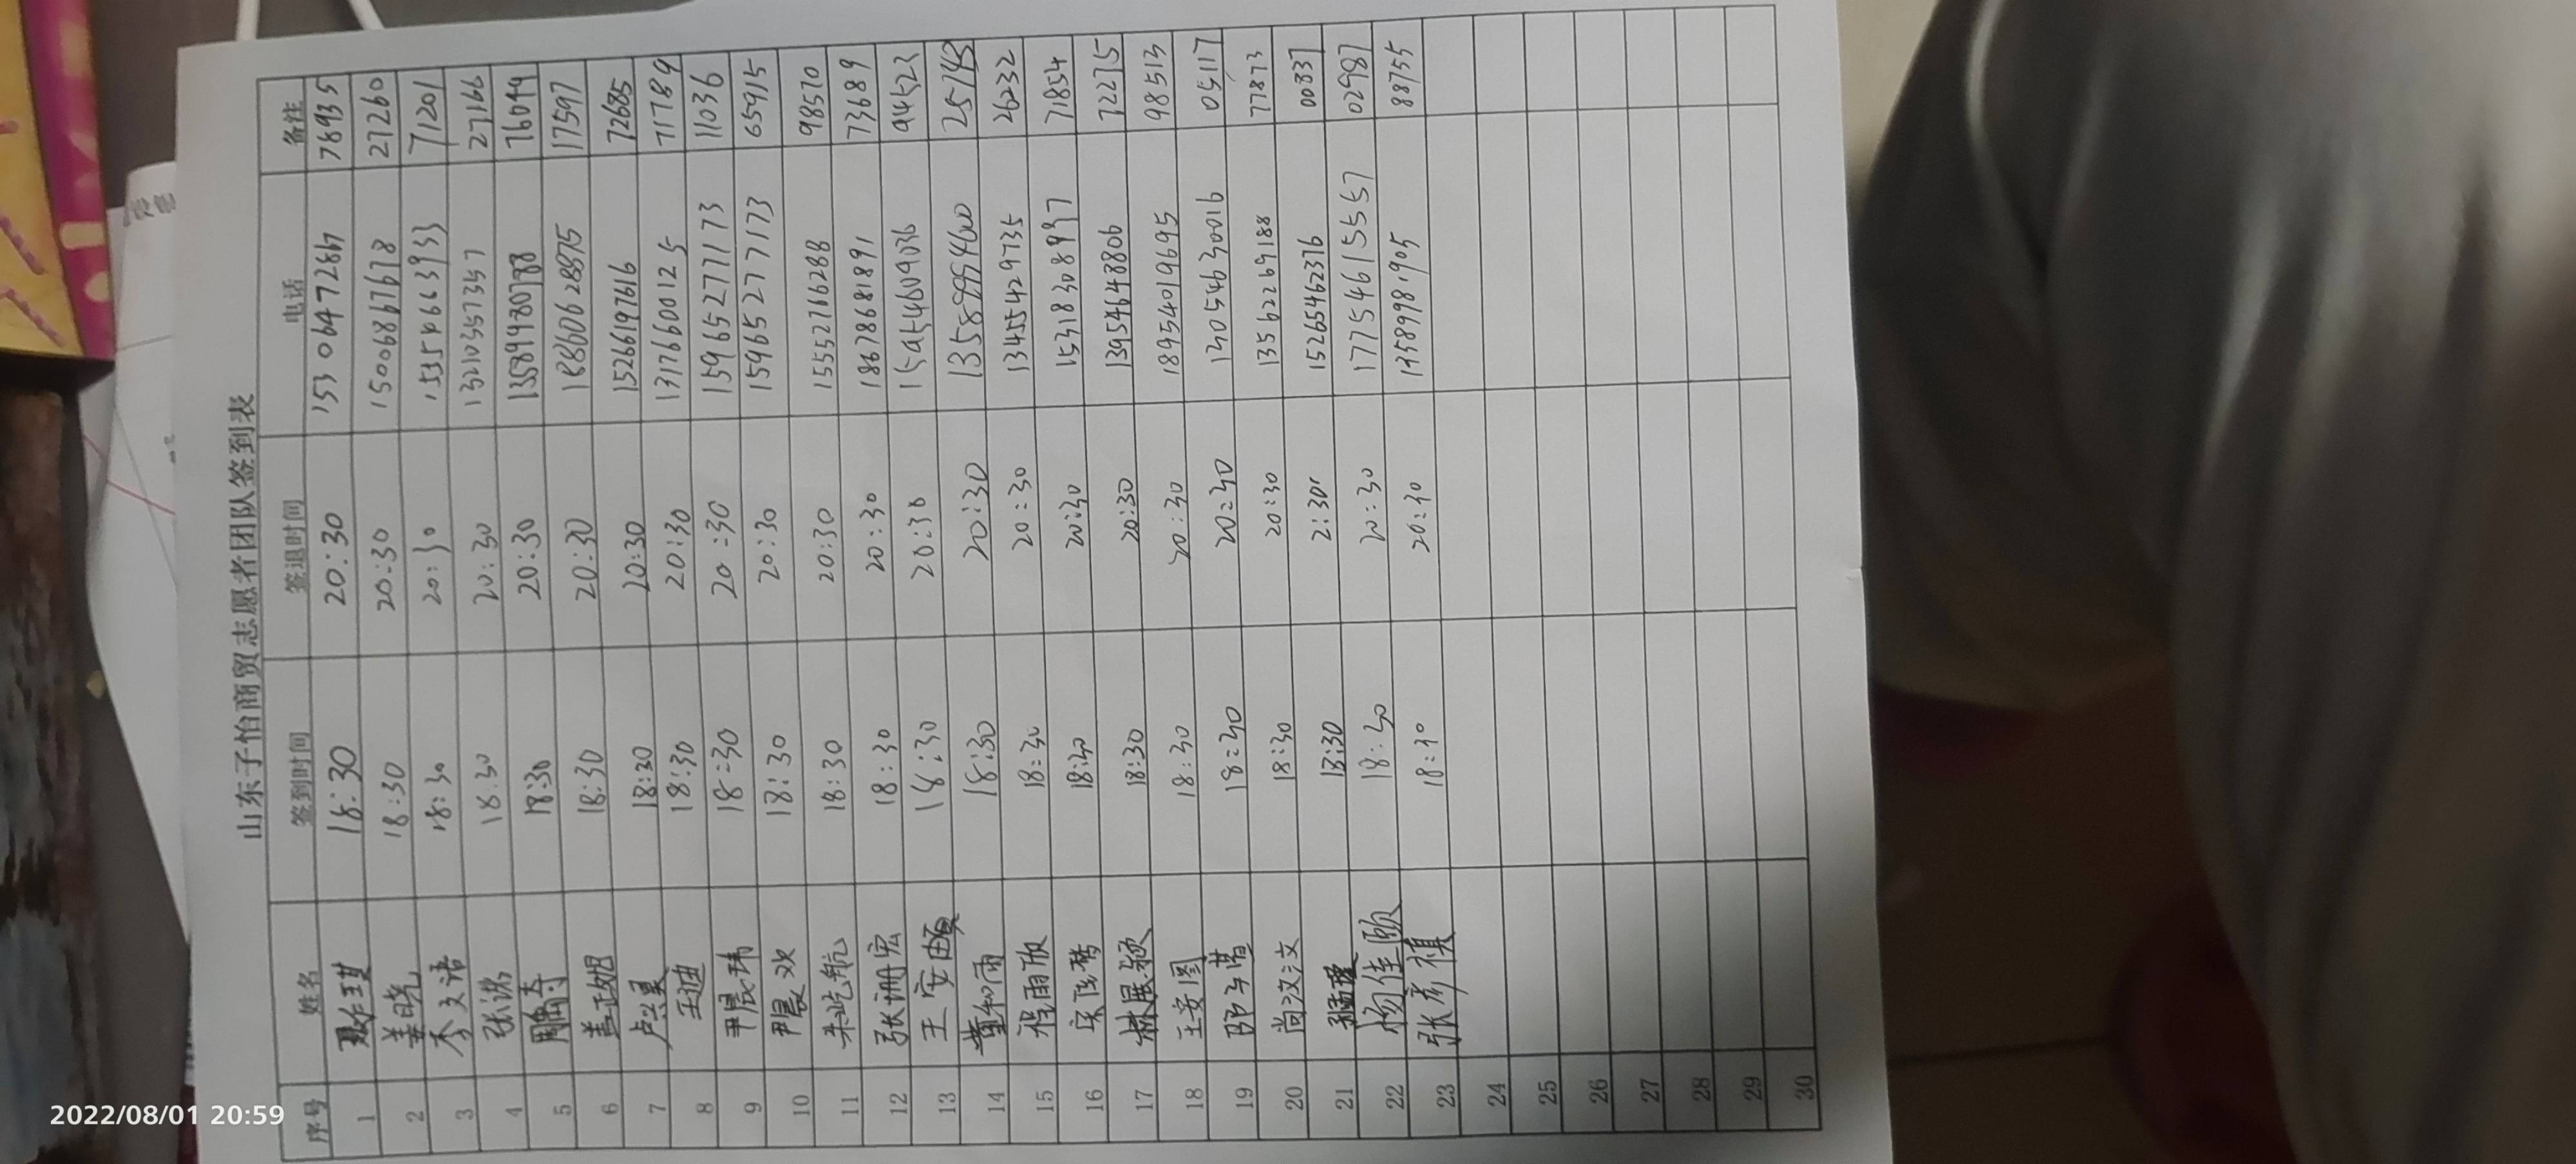 山东子怡商贸志愿者团队签到表
序号 姓名 签到时间 签退时间 电话 备注
1 18:30 20:30 15306472867 78935
2 姜晓 18:30 20:30 15006867678 27260
3 李文语 18:30 20:30 15554663933 71201
4 张说 18:30 20:30 13210357357 27166
5 18:30 20:30 13589980788 76044
6 盖正旭 18:30 20:30 18606628975 17597
7 卢兴昊 18:30 20:30 15266197616 72685
8 王迪 18:30 20:30 13176600125 71789
9 尹晨玮 18:30 20:30 15965277173 11036
10 尹晨欢 18:30 20:30 15965277173 65915
11 朱屹航 18:30 20:30 15552766288 98570
12 张诩宏 18:30 20:30 18678681891 73689
13 王安 18:30 20:30 15954609036 94523
14 董知雨 18:30 20:30 13589954600
15 程雨 18:30 20:30 13455429735 26232
16 18:30 20:30 15318308937 71854
17 林展颖 18:30 20:30 13954648806 72275
18 王安图 18:30 20:30 18954019695 98513
19 18:30 20:30 13054630016 05117
20 尚汶汶 18:30 20:30 13562269188 77873
21 18:30 2:30 15265462376 00837
22 杨佳颐 18:30 20:30 17754615557 02987
23 张彦祺 18:30 20:30 13589981905 88755
24
25
26
27
28
29
30
2022/08/01 20:59